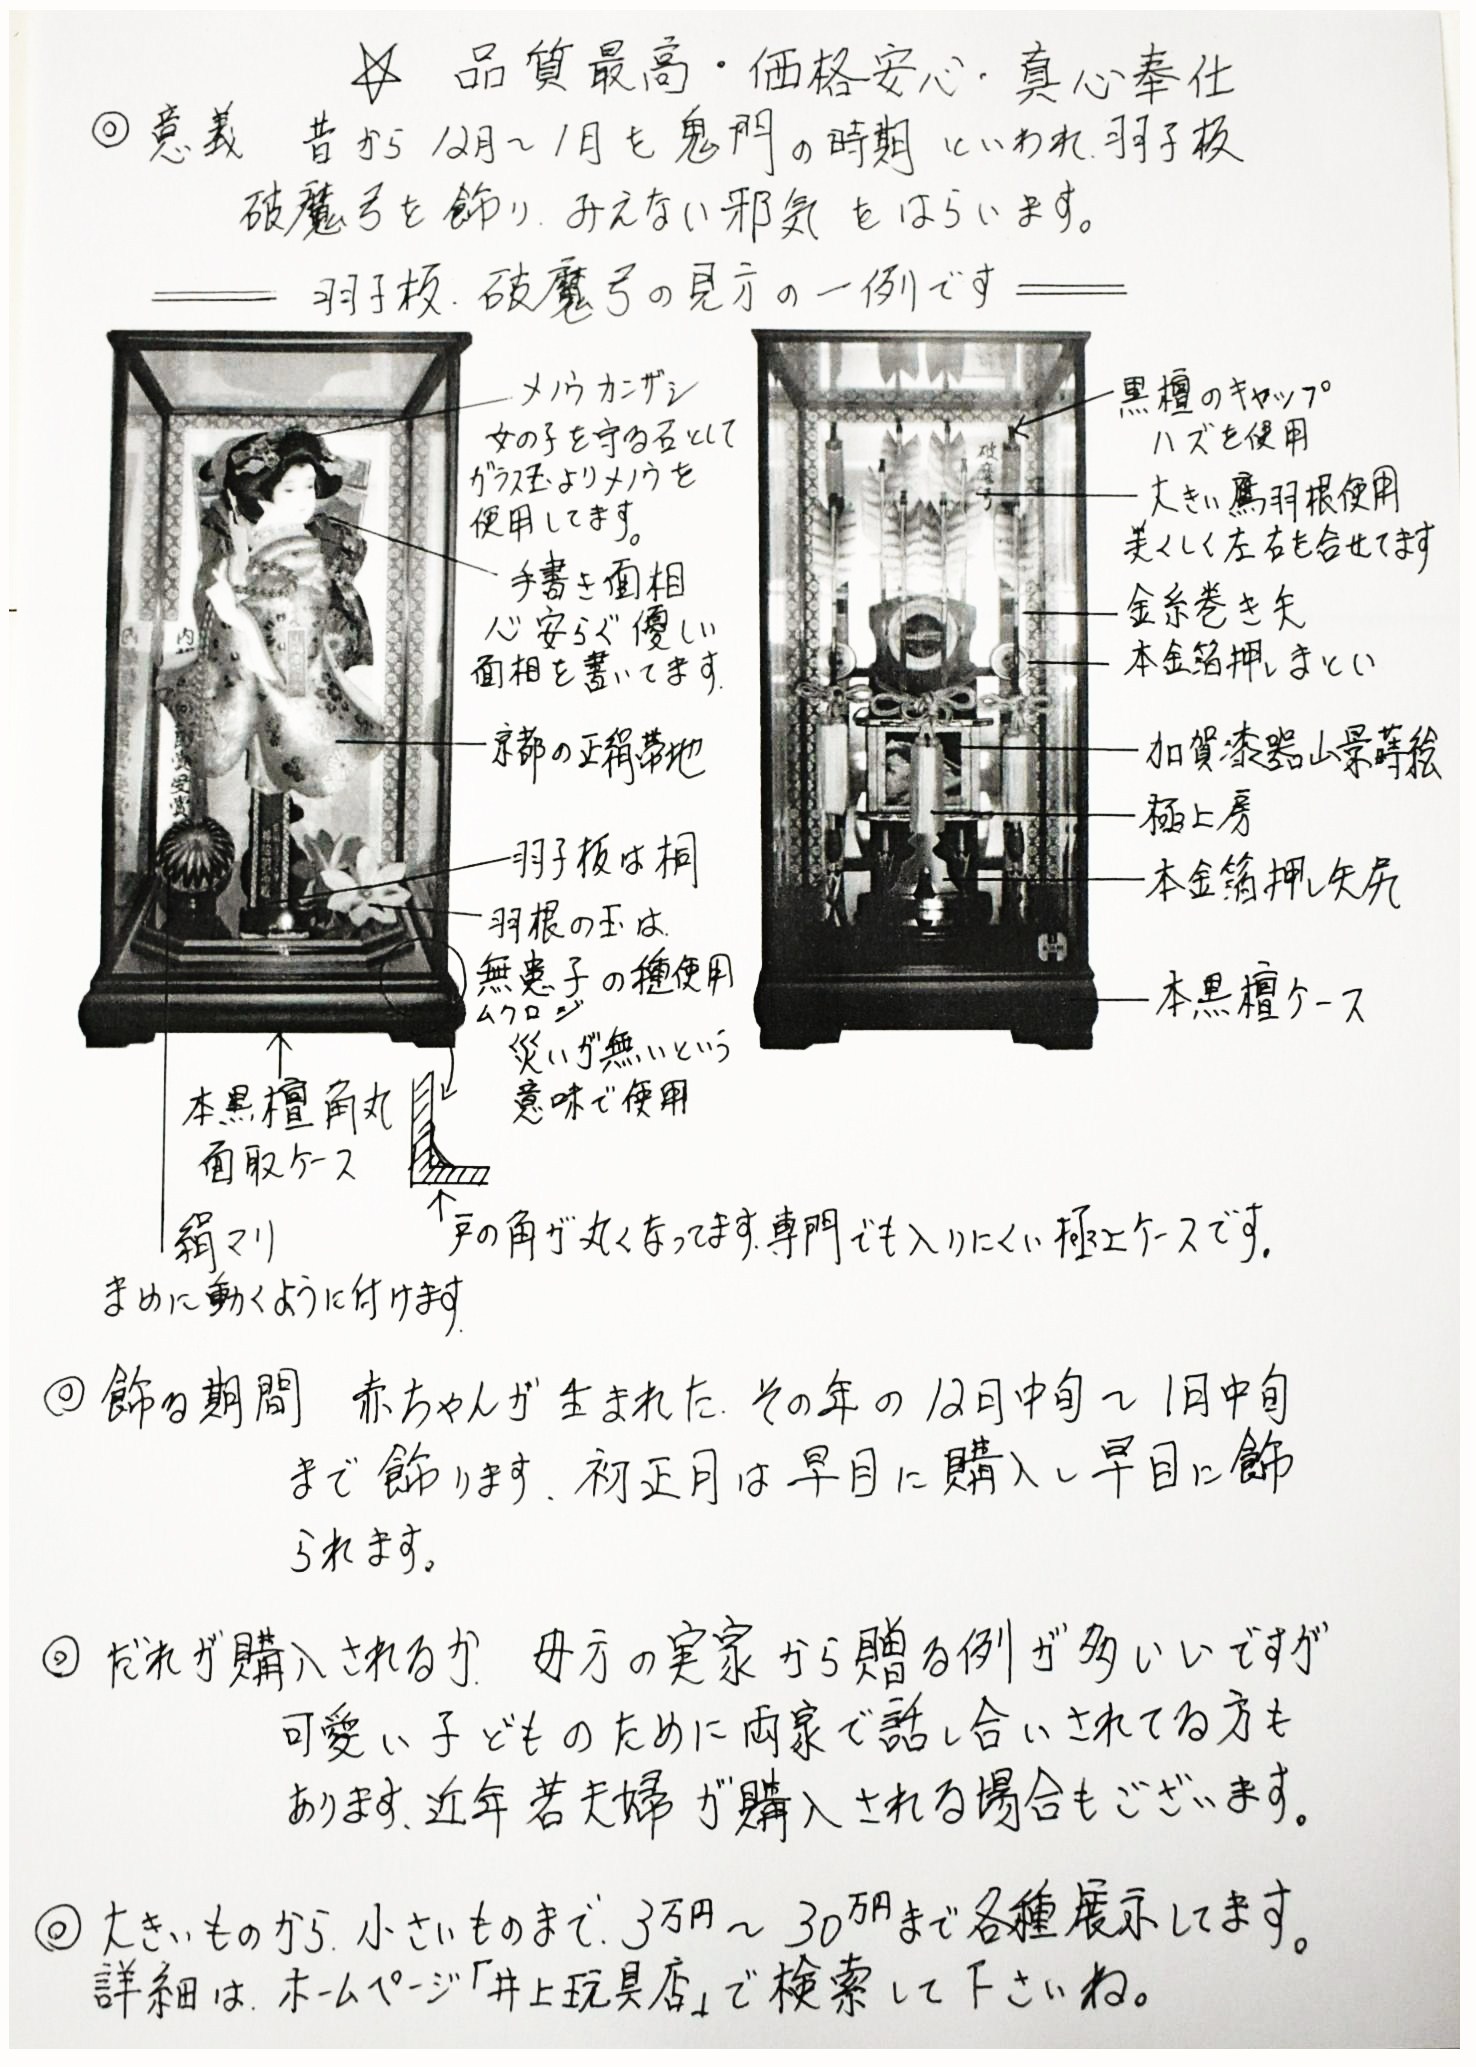 ☆ 品質最高・価格安心・真心奉仕
◎ 意義 昔から12月～1月を鬼門の時期といわれ、羽子板
破魔弓を飾り、みえない邪気をはらいます。
羽子板、破魔弓の見方の一例です
メノウカンザシ
女の子を守る石として
ガラス玉よりメノウを
使用してます。
手書き面相
心安らぐ優しい
面相を書いてます。
京都の正絹帯地
羽子板は桐
羽根の玉は、
無患子の種使用
ムクロジ
災いが無いという
意味で使用
本黒檀角丸
面取ケース
絹マリ
まめに動くように付けます。
戸の角が丸くなってます。専門でも入りにくい極上ケースです。
受賞
破魔弓
黒檀のキャップ
ハズを使用
大きい鷹羽根使用
美くしく左右を合せてます
金糸巻き矢
本金箔押しまとい
加賀漆器山景蒔絵
極上房
本金箔押し矢尻
本黒檀ケース
◎ 飾る期間 赤ちゃんが生まれた、その年の12月中旬～1月中旬
まで飾ります、初正月は早目に購入し早目に飾
られます。
◎ だれが購入されるか、母方の実家から贈る例が多いいですが
可愛い子どものために両家で話し合いされてる方も
あります、近年若夫婦が購入される場合もございます。
◎ 大きいものから、小さいものまで、3万円～30万円まで各種展示してます。
詳細は、ホームページ「井上玩具店」で検索して下さいね。